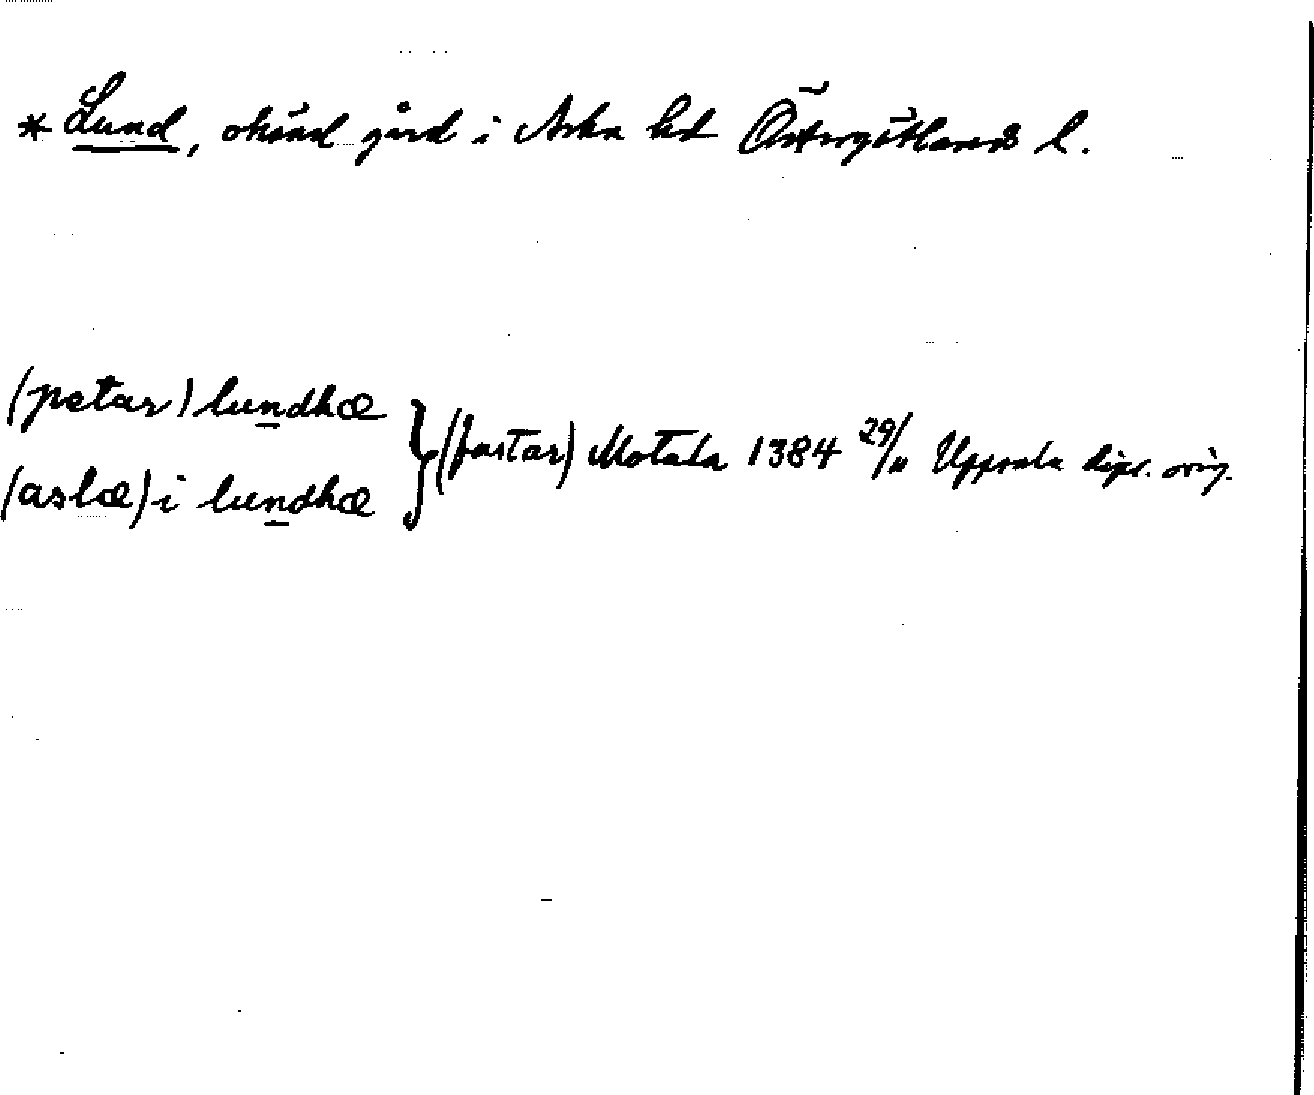 * Lund, okänd gård i Aska hd Östergötlands l.
(petar) lundhæ
(aslæ) i lundhæ } (fastar) Motala 1384 29/11 Uppsala dipl. orig.